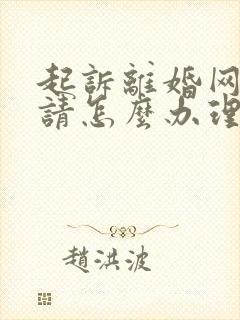 起訴離婚网
請怎麼办理
趙洪波